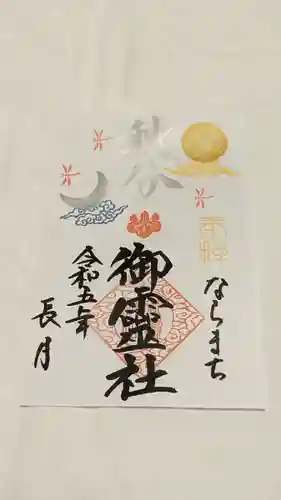 秋
ならまち
御霊社
令和五年
長月